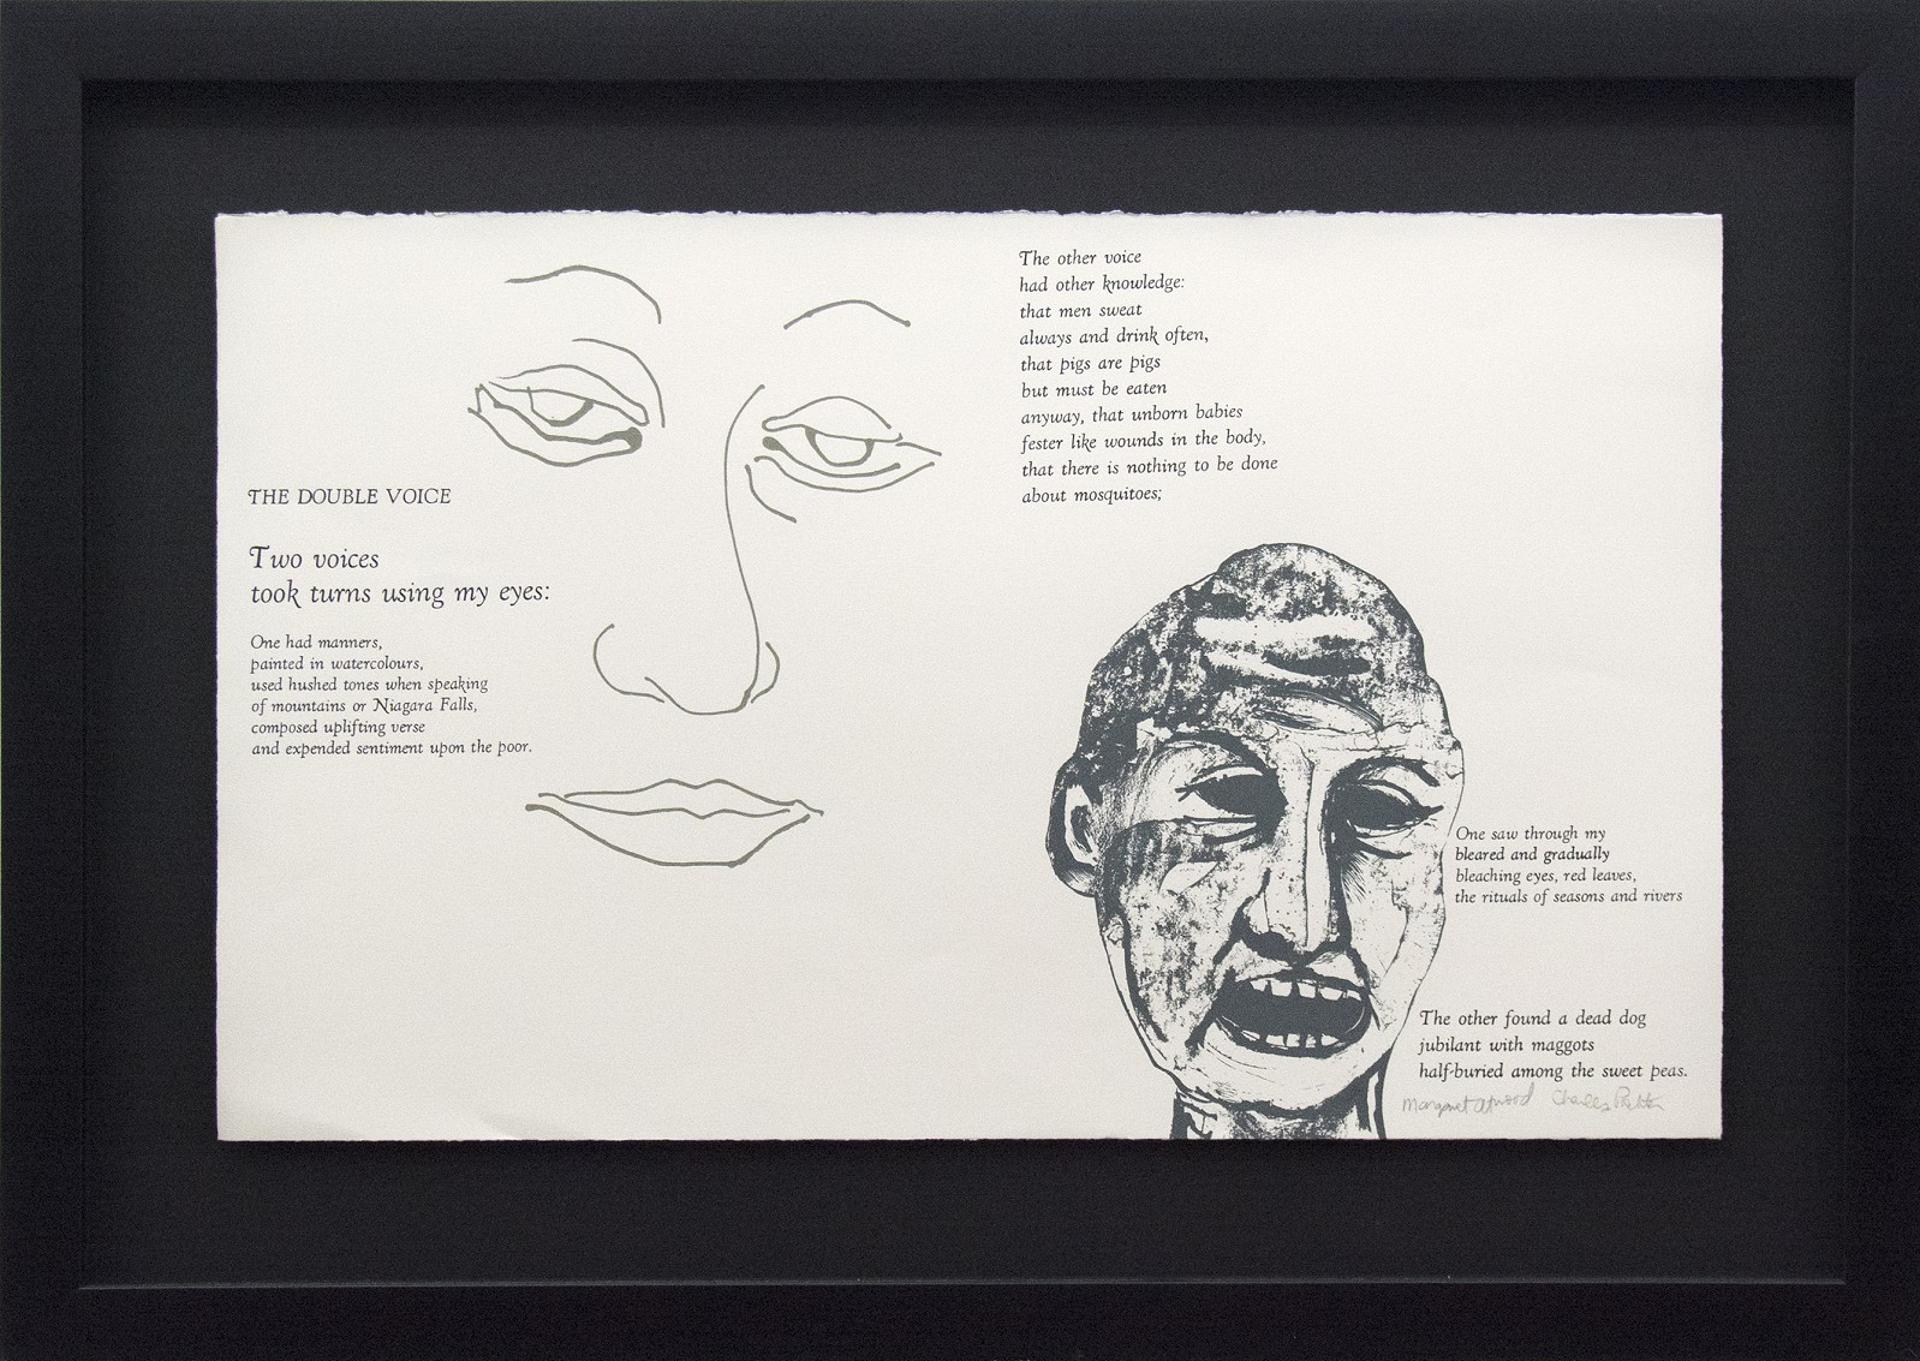 THE DOUBLE VOICE
Two voices
took turns using my eyes:
One had manners,
painted in watercolours,
used hushed tones when speaking
of mountains or Niagara Falls,
composed uplifting verse
and expended sentiment upon the poor.
The other voice
had other knowledge:
that men sweat
always and drink often,
that pigs are pigs
but must be eaten
anyway, that unborn babies
fester like wounds in the body,
that there is nothing to be done
about mosquitoes;
One saw through my
bleared and gradually
bleaching eyes, red leaves,
the rituals of seasons and rivers
The other found a dead dog
jubilant with maggots
half-buried among the sweet peas.
Margaret Atwood Charles